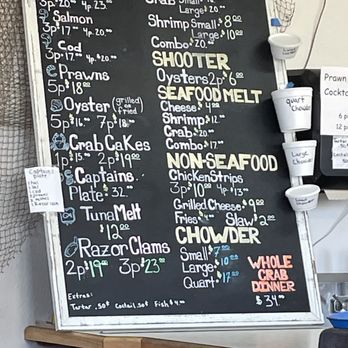 Salmon
3p $20. 4p
Cod
3p $17. 4p $20.
Prawns
5p $18.00
Oyster (grilled & fried)
5p $16. 7p $18.
Crab Cakes
1p $15. 2p $19.
Captains
Plate - 32.00
Tuna Melt
$12.00
Razor Clams
2p $19.00 3p $23.00
Extras:
Tartar .50¢ Cocktail .50¢ Fish $4.00
Crab Small
Large $20.
Shrimp Small $8.00
Large $10.00
Combo $20.00
SHOOTER
Oysters 2p $6.00
SEAFOOD MELT
Cheese $9.00
Shrimp $12.00
Crab $20.00
Combo $17.00
NON-SEAFOOD
Chicken Strips
3p $10.00 4p $13.00
Grilled Cheese $9.00
Fries $4.00 Slaw $2.00
CHOWDER
Small $7.00
Large $10.00
Quart $17.00
WHOLE
CRAB
DINNER
$34.00
Captain's
Plate
QUART
Chowder
Large
Chowder
Small
Chowder
Prawn
Cockta
6 p
12 p